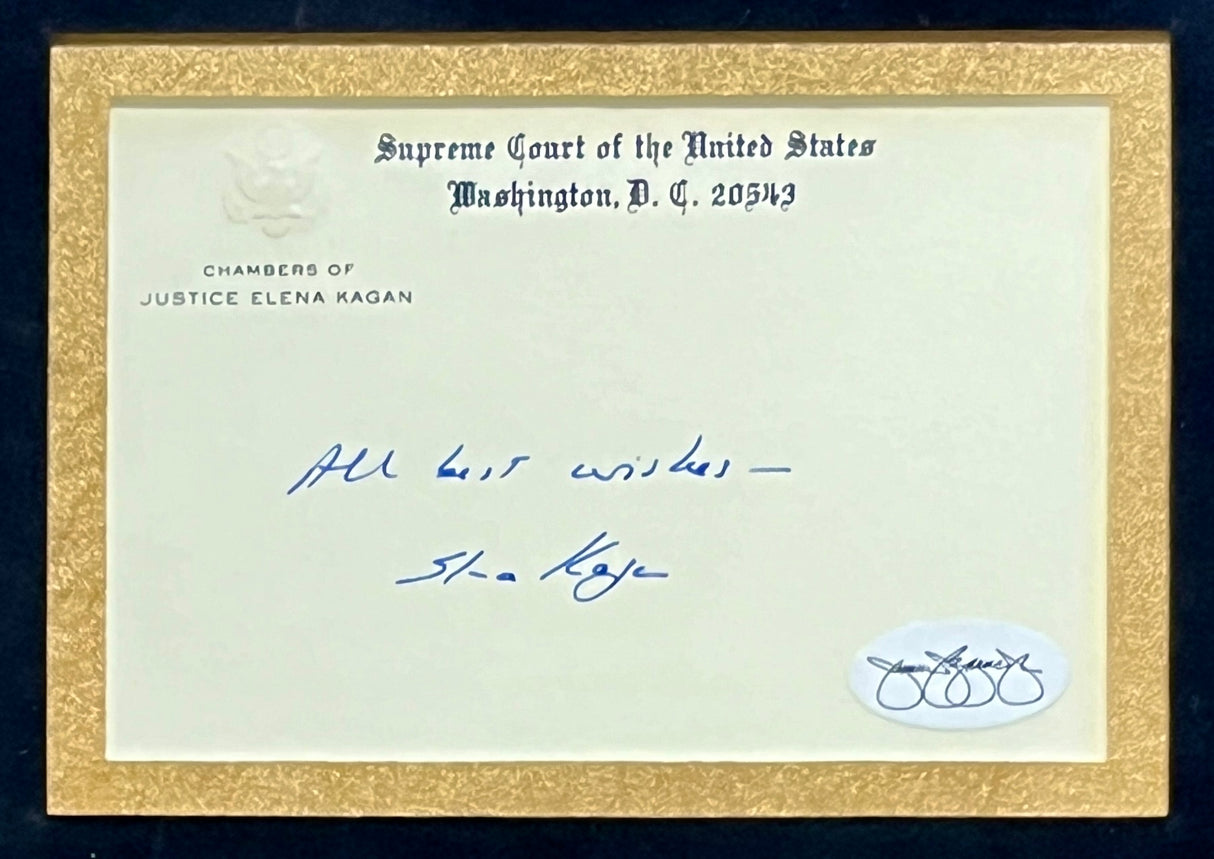 Supreme Court of the United States
Washington, D. C. 20543
CHAMBERS OF
JUSTICE ELENA KAGAN
All best wishes —
Elena Kagan